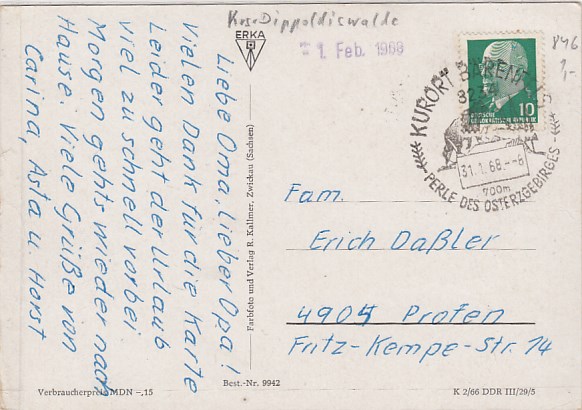 Krs. Dippoldiswalde
ERKA
1. Feb. 1968
846
1,-
Liebe Oma, lieber Opa!
Vielen Dank für die Karte
Leider geht der Urlaub
viel zu schnell vorbei
Morgen gehts wieder nach
Hause. Viele Grüße von
Carina, Asta u. Horst
Farbfoto und Verlag R. Kallmer, Zwickau (Sachsen)
DEUTSCHE
DEMOKRATISCHE REPUBLIK
10
KURORT BÄRENFELS
31.1.68.--8
700m
PERLE DES OSTERZGEBIRGES
Fam.
Erich Daßler
4904 Profen
Fritz-Kempe-Str. 14
Verbraucherpreis MDN -,15
Best.-Nr. 9942
K 2/66 DDR III/29/5